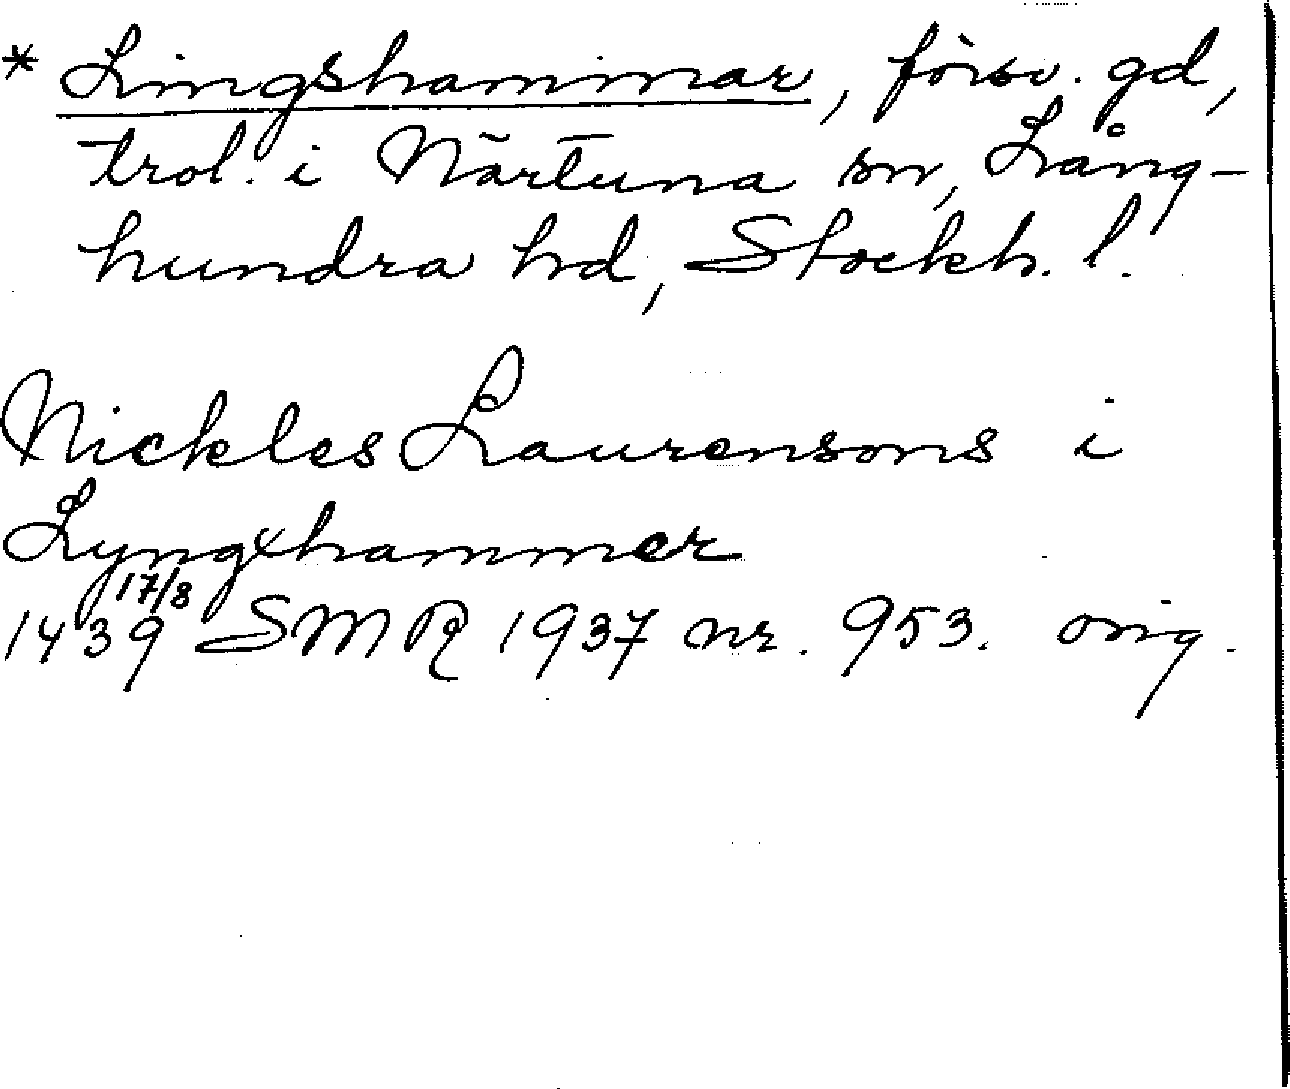 * Lingshammar, försv. gd,
trol. i Närtuna sn, Lång-
hundra hd, Stockh. l.
Nickles Laurensons i
Lyngxhammer
1439 17/8 SMR 1937 nr. 953. orig.